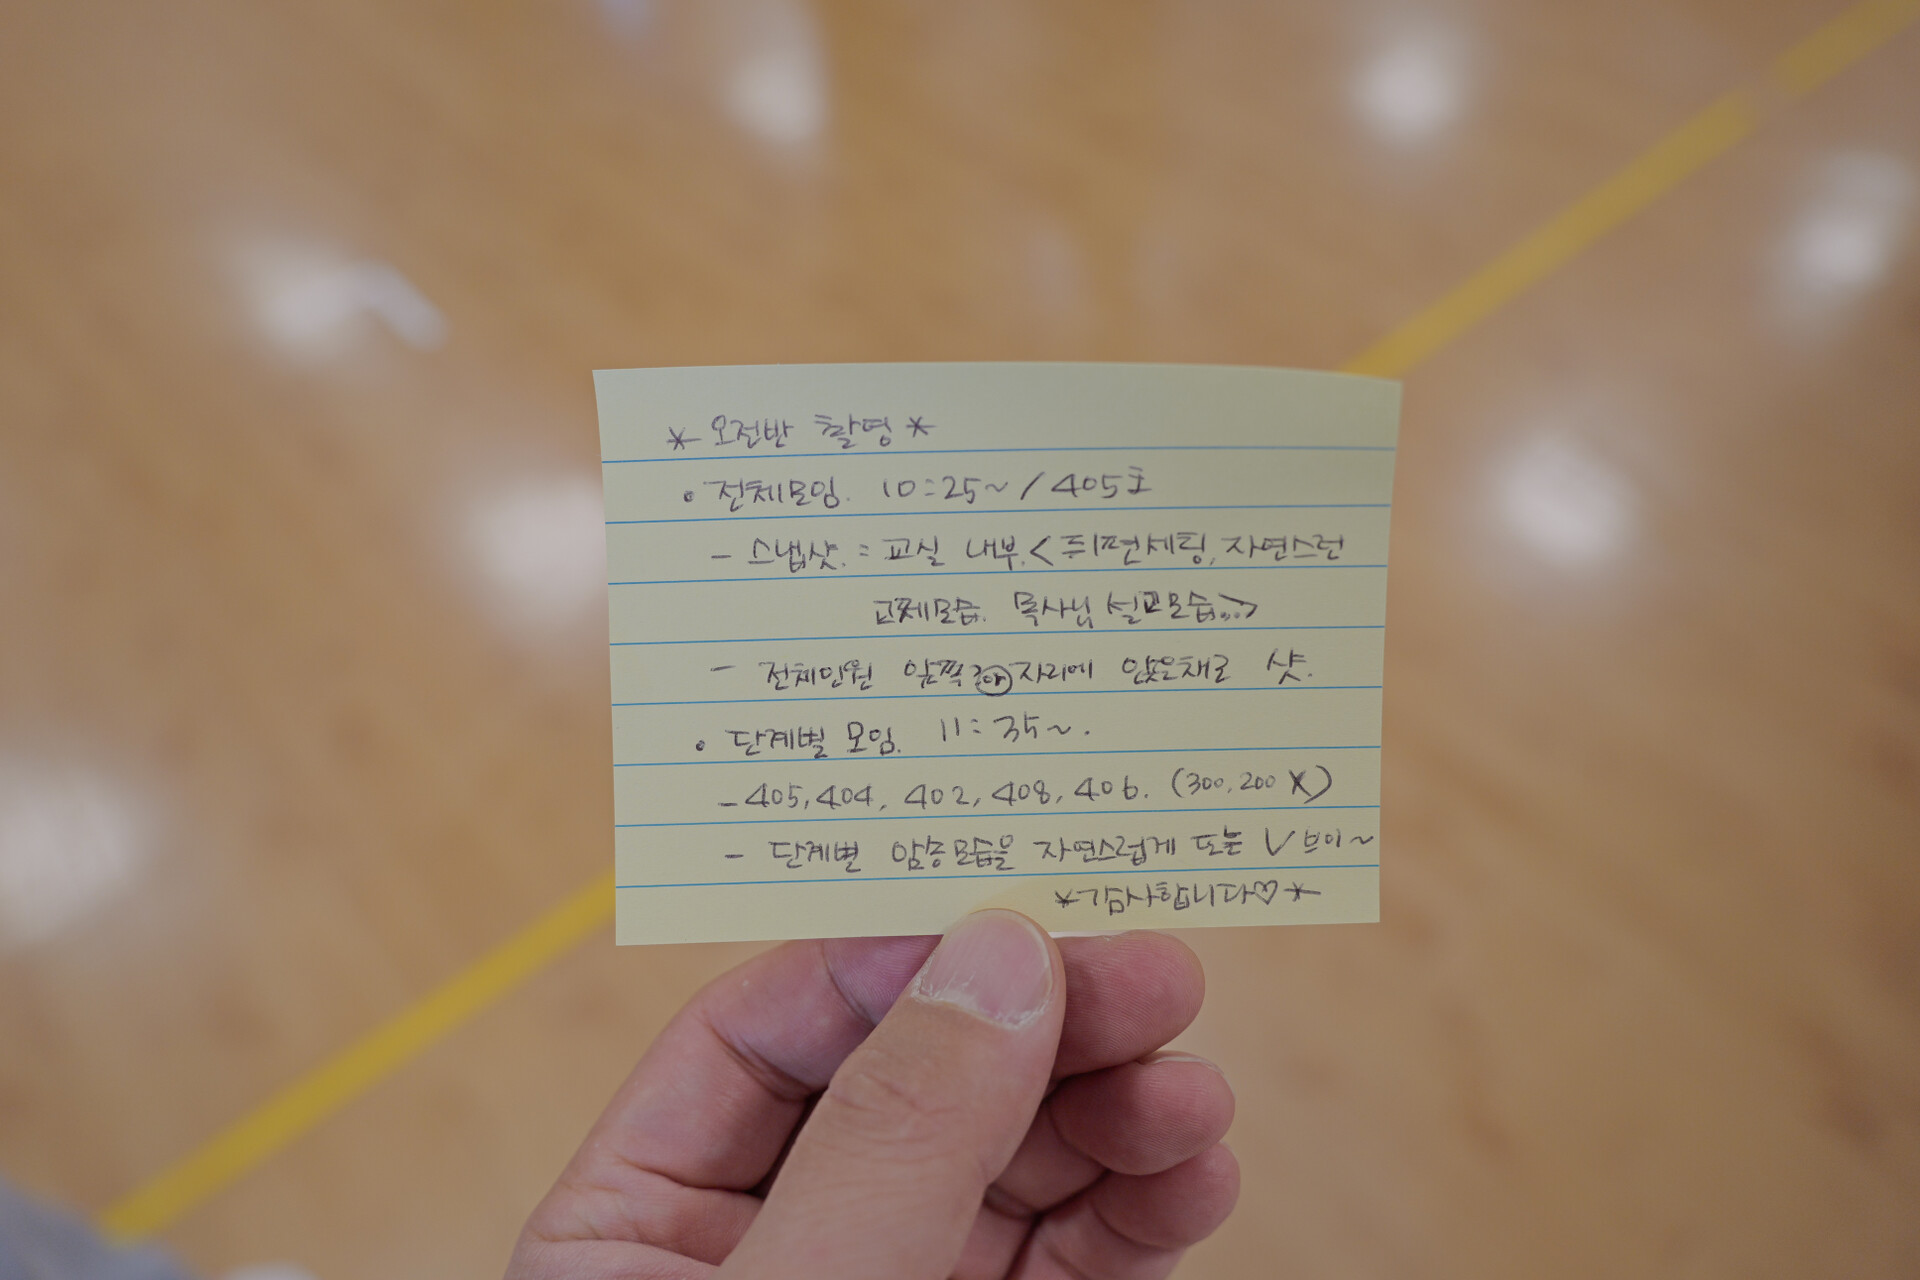 * 오전반 촬영 *
• 전체모임. 10:25~ / 405호
- 스냅샷. = 교실 내부.< 뒤편세팅, 자연스런
교제모습. 목사님 설교모습...>
- 전체인원 앞쪽 자리에 앉은채로 샷.
• 단계별 모임. 11:35~.
- 405, 404, 402, 408, 406. (300, 200 X)
- 단계별 암송모습을 자연스럽게 또는 V 브이~
* 감사합니다♡ *